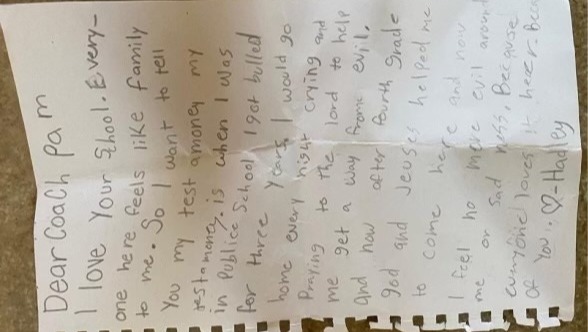 Dear Coach Pam
I love Your School. Every-
one here feels like family
to me. So I want to tell
You my test money my
restamoney. is when I was
in Publice School I got bulled
for three years, I would go
home every night crying and
Praying to the lord to help
me get a way frome evil.
and now after fourth grade
god and Jeuses helped me
to come here and now
I feel no more evil around
me or sad ness, Because
everyone loves it heer. Beca
of You, ♡-Hadley